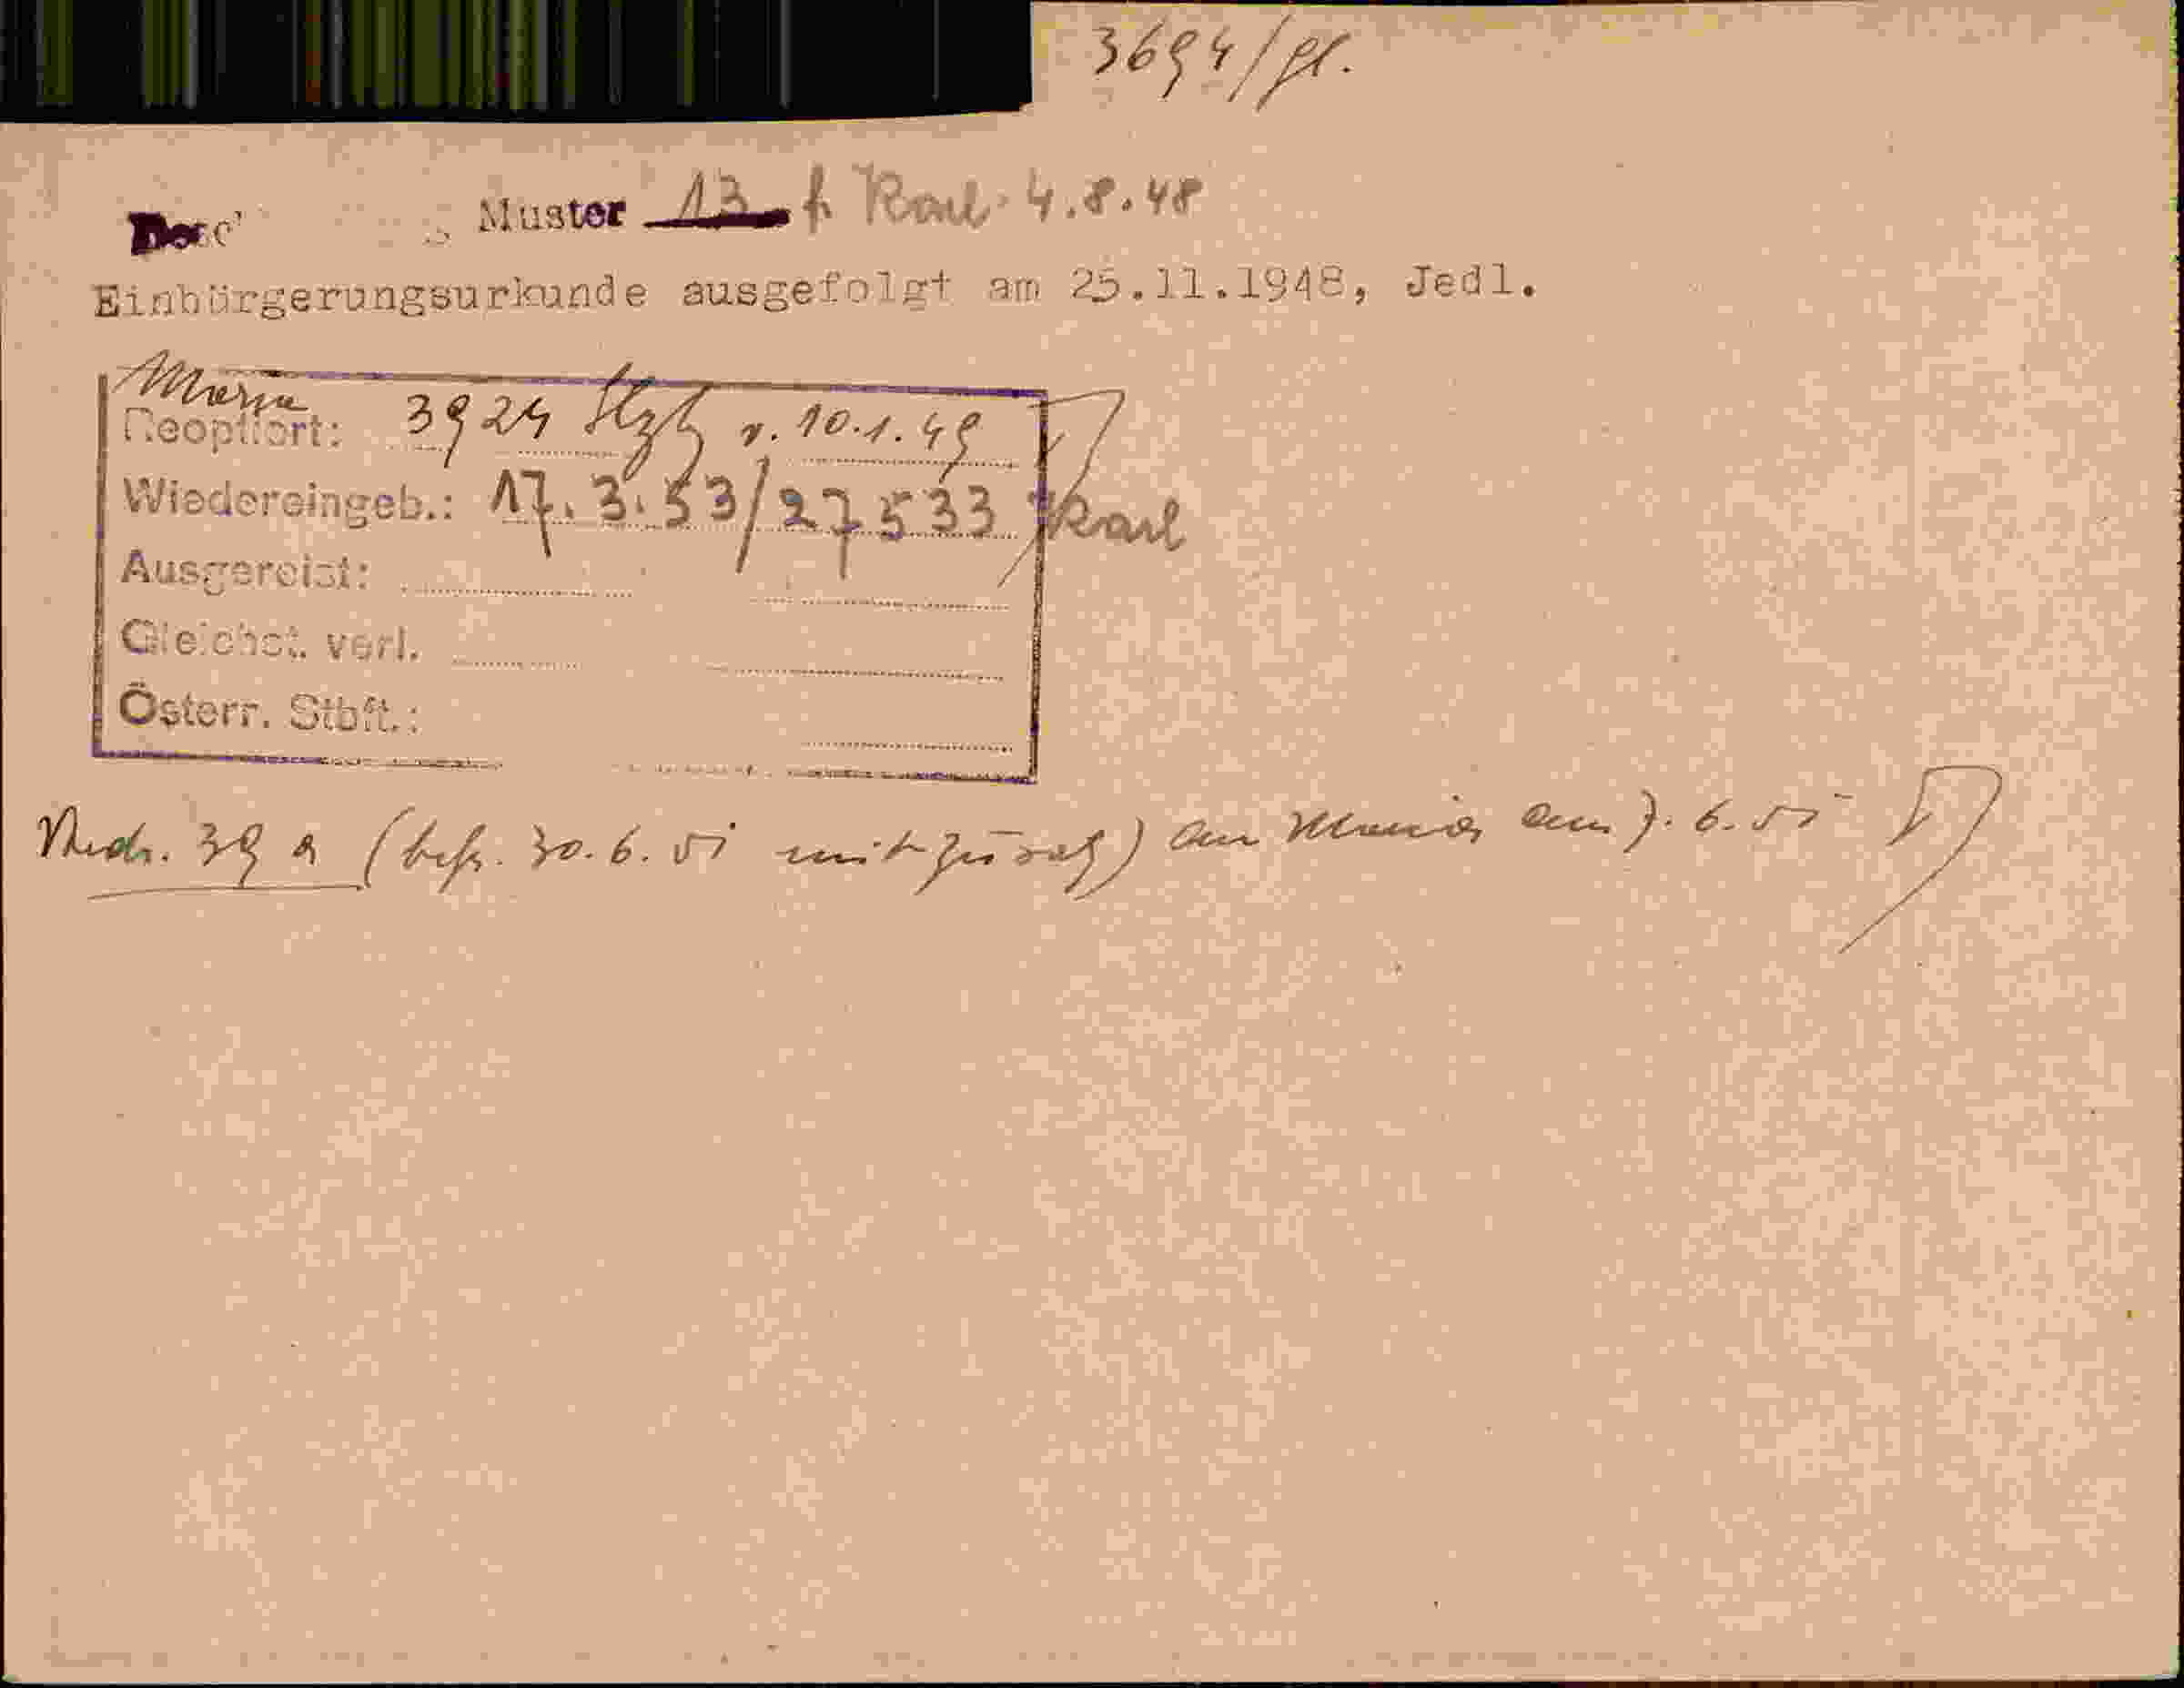 3694/gl.
Muster 13 f. Karl 4.8.48
Einbürgerungsurkunde ausgefolgt am 25.11.1948, Jedl.
Maria
Reoptiert: 3924 v. 10.1.49
Wiedereingeb.: 17.3.53/27533 Karl
Ausgereist:
Gleichst. verl.
Österr. Stbft.:
39 a (befr. 30.6.51 mit Zusatz) an Maria am 7.6.51